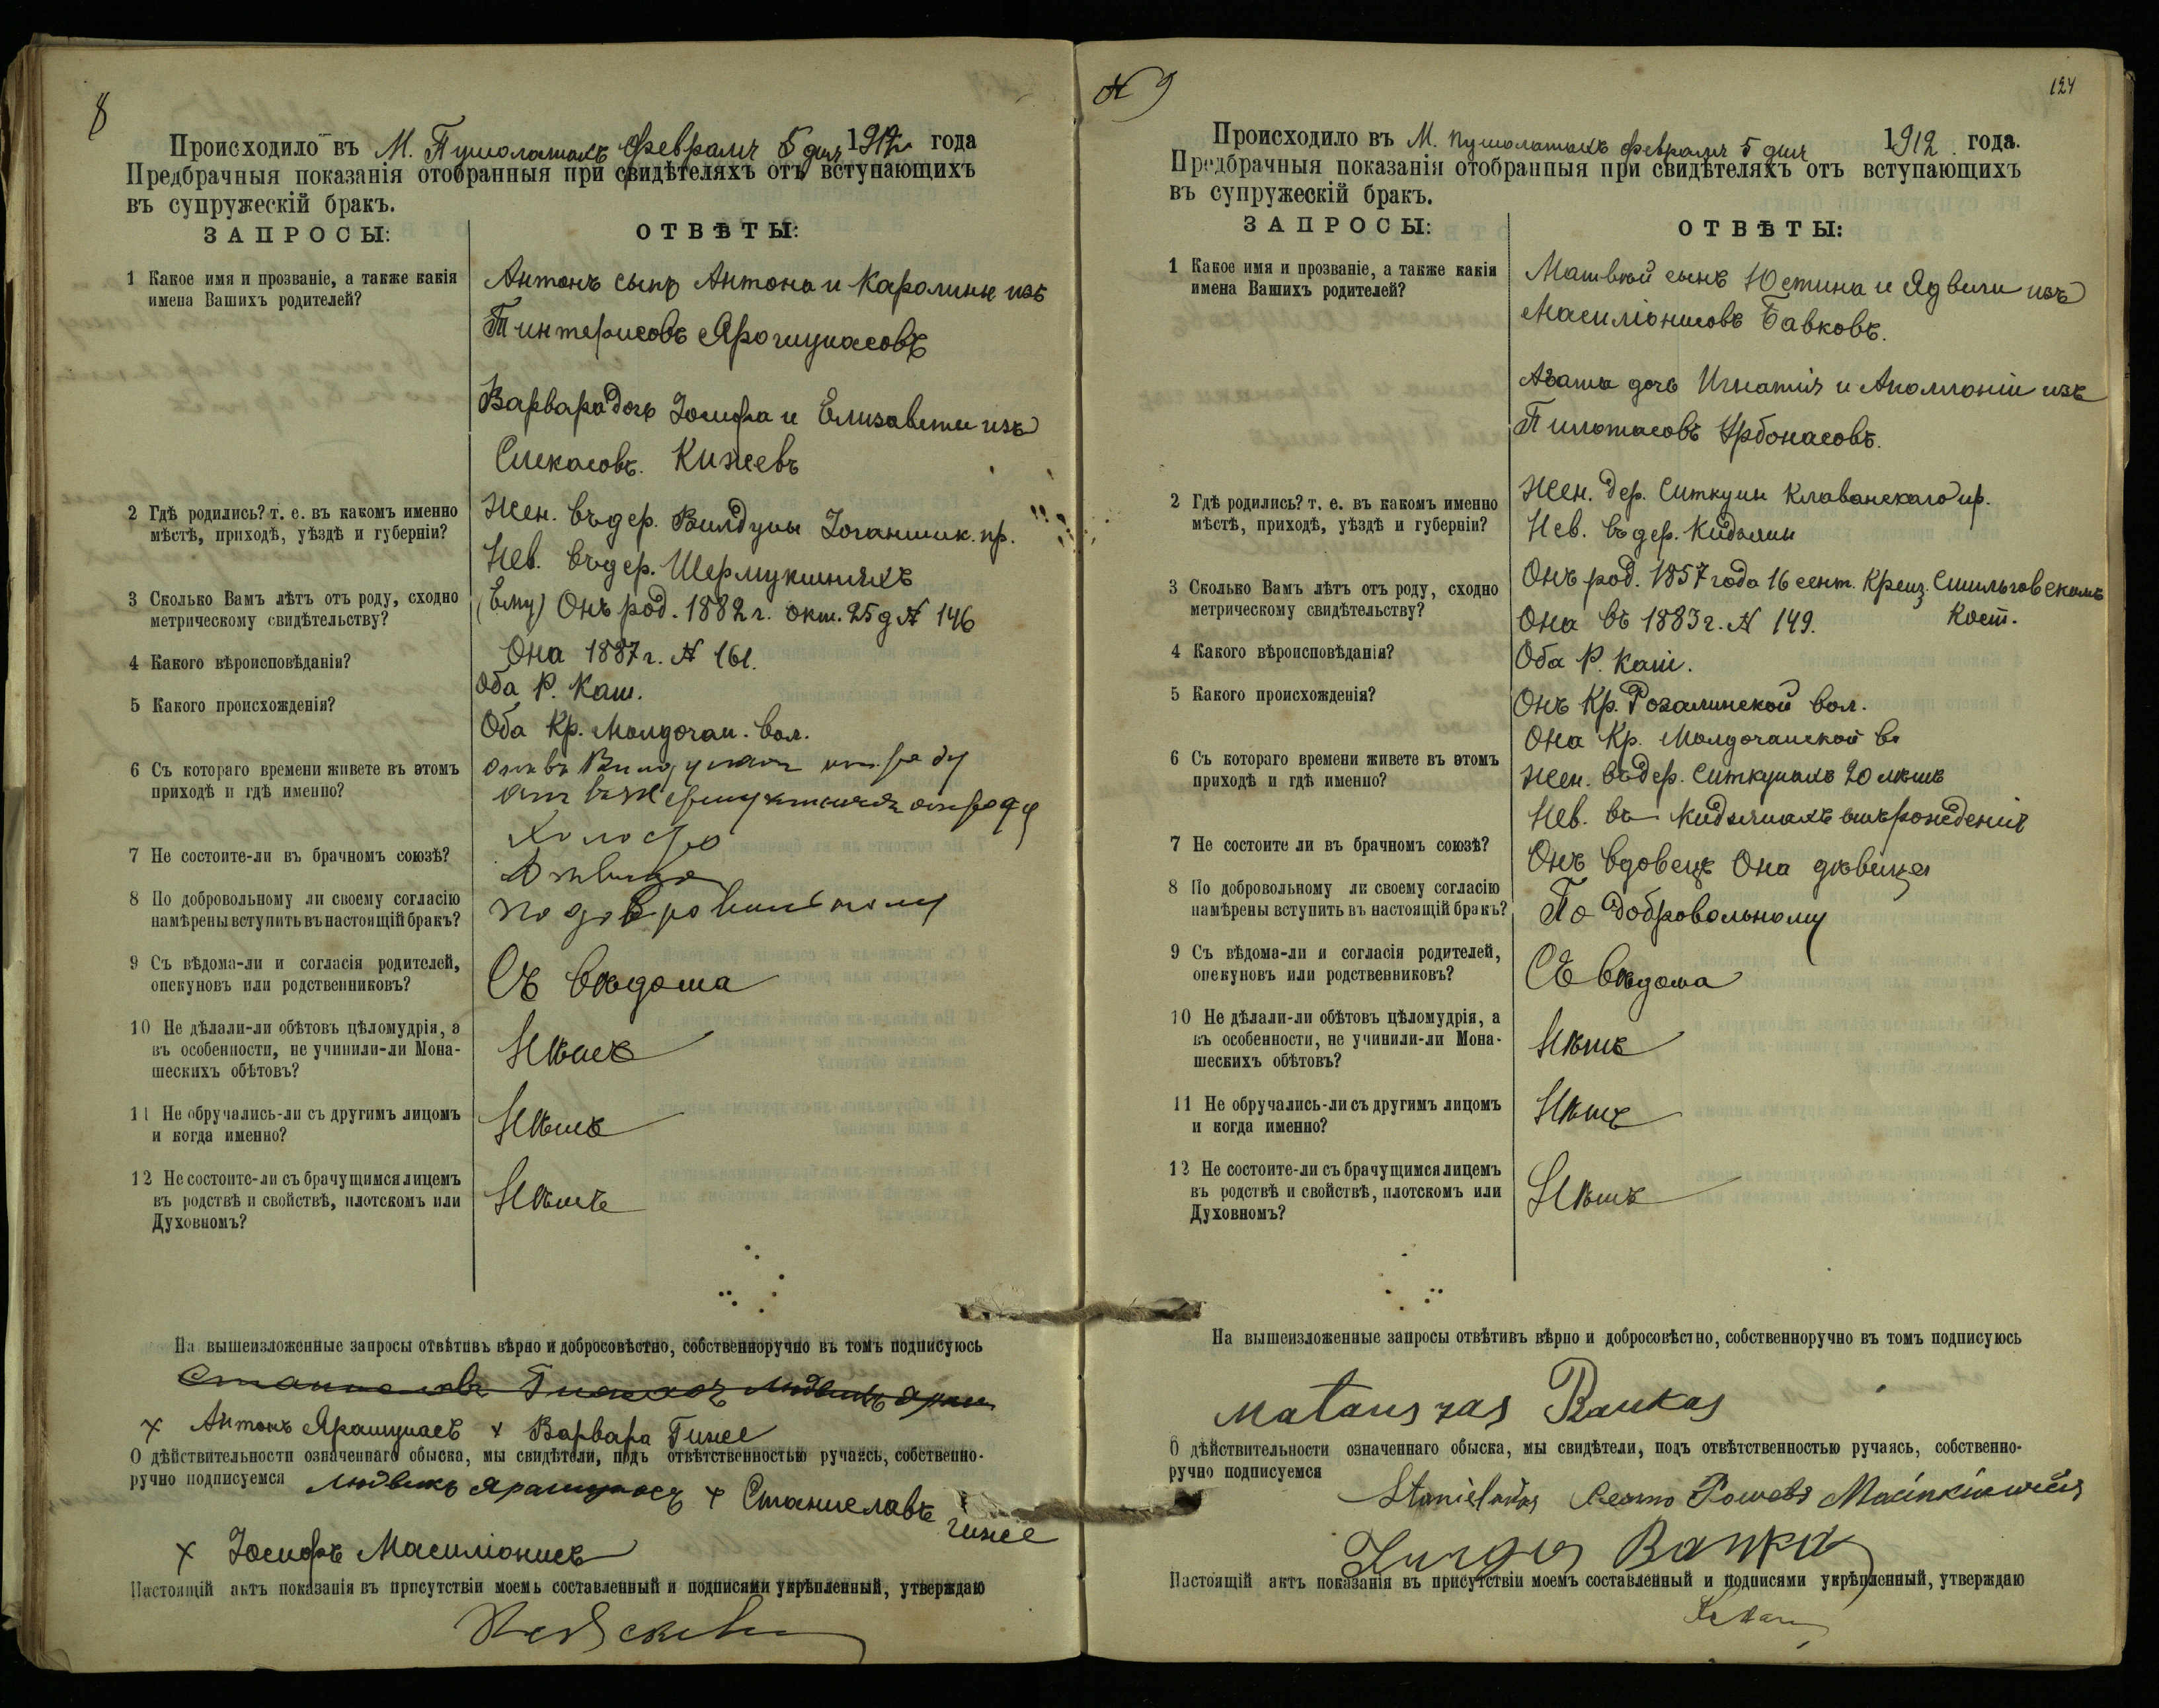 8
Происходило въ М. Пушолатахъ февраля 5 дня 1912 года
Предбрачныя показанія отобранныя при свидѣтеляхъ отъ вступающихъ
въ супружескій бракъ.
ЗАПРОСЫ:
ОТВѢТЫ:
1 Какое имя и прозваніе, а также какія
имена Вашихъ родителей?
Антонъ сынъ Антона и Каролины изъ
Пинтерисовъ Ярошунасовъ
Варвара дочь Іосифа и Елизаветы изъ
Кижеевъ
2 Гдѣ родились? т. е. въ какомъ именно
мѣстѣ, приходѣ, уѣздѣ и губерніи?
Жен. въ дер. Вилдуны Іоганишк. пр.
Нев. въ дер. Шермукшняхъ
3 Сколько Вамъ лѣтъ отъ роду, сходно
метрическому свидѣтельству?
(Ему) Онъ род. 1882 г. окт. 25 д № 146
Она 1887 г. № 161.
4 Какого вѣроисповѣданія?
Оба Р. Кат.
5 Какого происхожденія?
Оба Кр. вол.
6 Съ котораго времени живете въ этомъ
приходѣ и гдѣ именно?
7 Не состоите-ли въ брачномъ союзѣ?
Холостъ
Дѣвица
8 По добровольному ли своему согласію
намѣрены вступить въ настоящій бракъ?
По добровольному
9 Съ вѣдома-ли и согласія родителей,
опекуновъ или родственниковъ?
Съ вѣдома
10 Не дѣлали-ли обѣтовъ цѣломудрія, а
въ особенности, не учинили-ли Мона-
шескихъ обѣтовъ?
Нѣтъ
11 Не обручались-ли съ другимъ лицомъ
и когда именно?
Нѣтъ
12 Не состоите-ли съ брачущимся лицемъ
въ родствѣ и свойствѣ, плотскомъ или
Духовномъ?
Нѣтъ
На вышеизложенные запросы отвѣтивъ вѣрно и добросовѣстно, собственноручно въ томъ подписуюсь
× Антонъ Ярашунасъ × Варвара Гиже
О дѣйствительности означеннаго обыска, мы свидѣтели, подъ отвѣтственностью ручаясь, собственно-
ручно подписуемся Людвикъ Ярашунасъ × Станиславъ
Гиже
× Іосифъ Масиліонисъ
Настоящій актъ показанія въ присутствіи моемъ составленный и подписями укрѣпленный, утверждаю
№ 9
124
Происходило въ М. Пушолатахъ февраля 5 дня 1912 года.
Предбрачныя показанія отобранныя при свидѣтеляхъ отъ вступающихъ
въ супружескій бракъ.
ЗАПРОСЫ:
ОТВѢТЫ:
1 Какое имя и прозваніе, а также какія
имена Вашихъ родителей?
Матвѣй сынъ Юстина и Ядвиги изъ
Масиліонисовъ Бавковъ.
Агата дочь Игнатія и Аполлоніи изъ
Пилотасовъ Урбонасовъ.
2 Гдѣ родились? т. е. въ какомъ именно
мѣстѣ, приходѣ, уѣздѣ и губерніи?
Жен. дер. Ситкуны Клаванскаго пр.
Нев. въ дер.
3 Сколько Вамъ лѣтъ отъ роду, сходно
метрическому свидѣтельству?
Онъ род. 1857 года 16 сент. Крещ. Смильговскомъ
Она въ 1883 г. № 149. Кост.
4 Какого вѣроисповѣданія?
Оба Р. Кат.
5 Какого происхожденія?
Онъ Кр. Розалинской вол.
Она Кр. в
6 Съ котораго времени живете въ этомъ
приходѣ и гдѣ именно?
Жен. въ дер. Ситкунахъ 20 лѣтъ
Нев. въ отъ рожденія
7 Не состоите ли въ брачномъ союзѣ?
Онъ вдовецъ Она дѣвица
8 По добровольному ли своему согласію
намѣрены вступить въ настоящій бракъ?
По добровольному
9 Съ вѣдома-ли и согласія родителей,
опекуновъ или родственниковъ?
Съ вѣдома
10 Не дѣлали-ли обѣтовъ цѣломудрія, а
въ особенности, не учинили-ли Мона-
шескихъ обѣтовъ?
Нѣтъ
11 Не обручались-ли съ другимъ лицомъ
и когда именно?
Нѣтъ
12 Не состоите-ли съ брачущимся лицемъ
въ родствѣ и свойствѣ, плотскомъ или
Духовномъ?
Нѣтъ
На вышеизложенные запросы отвѣтивъ вѣрно и добросовѣстно, собственноручно въ томъ подписуюсь
Mataus zas Baukas
О дѣйствительности означеннаго обыска, мы свидѣтели, подъ отвѣтственностью ручаясь, собственно-
ручно подписуемся
Jurgis
Настоящій актъ показанія въ присутствіи моемъ составленный и подписями укрѣпленный, утверждаю